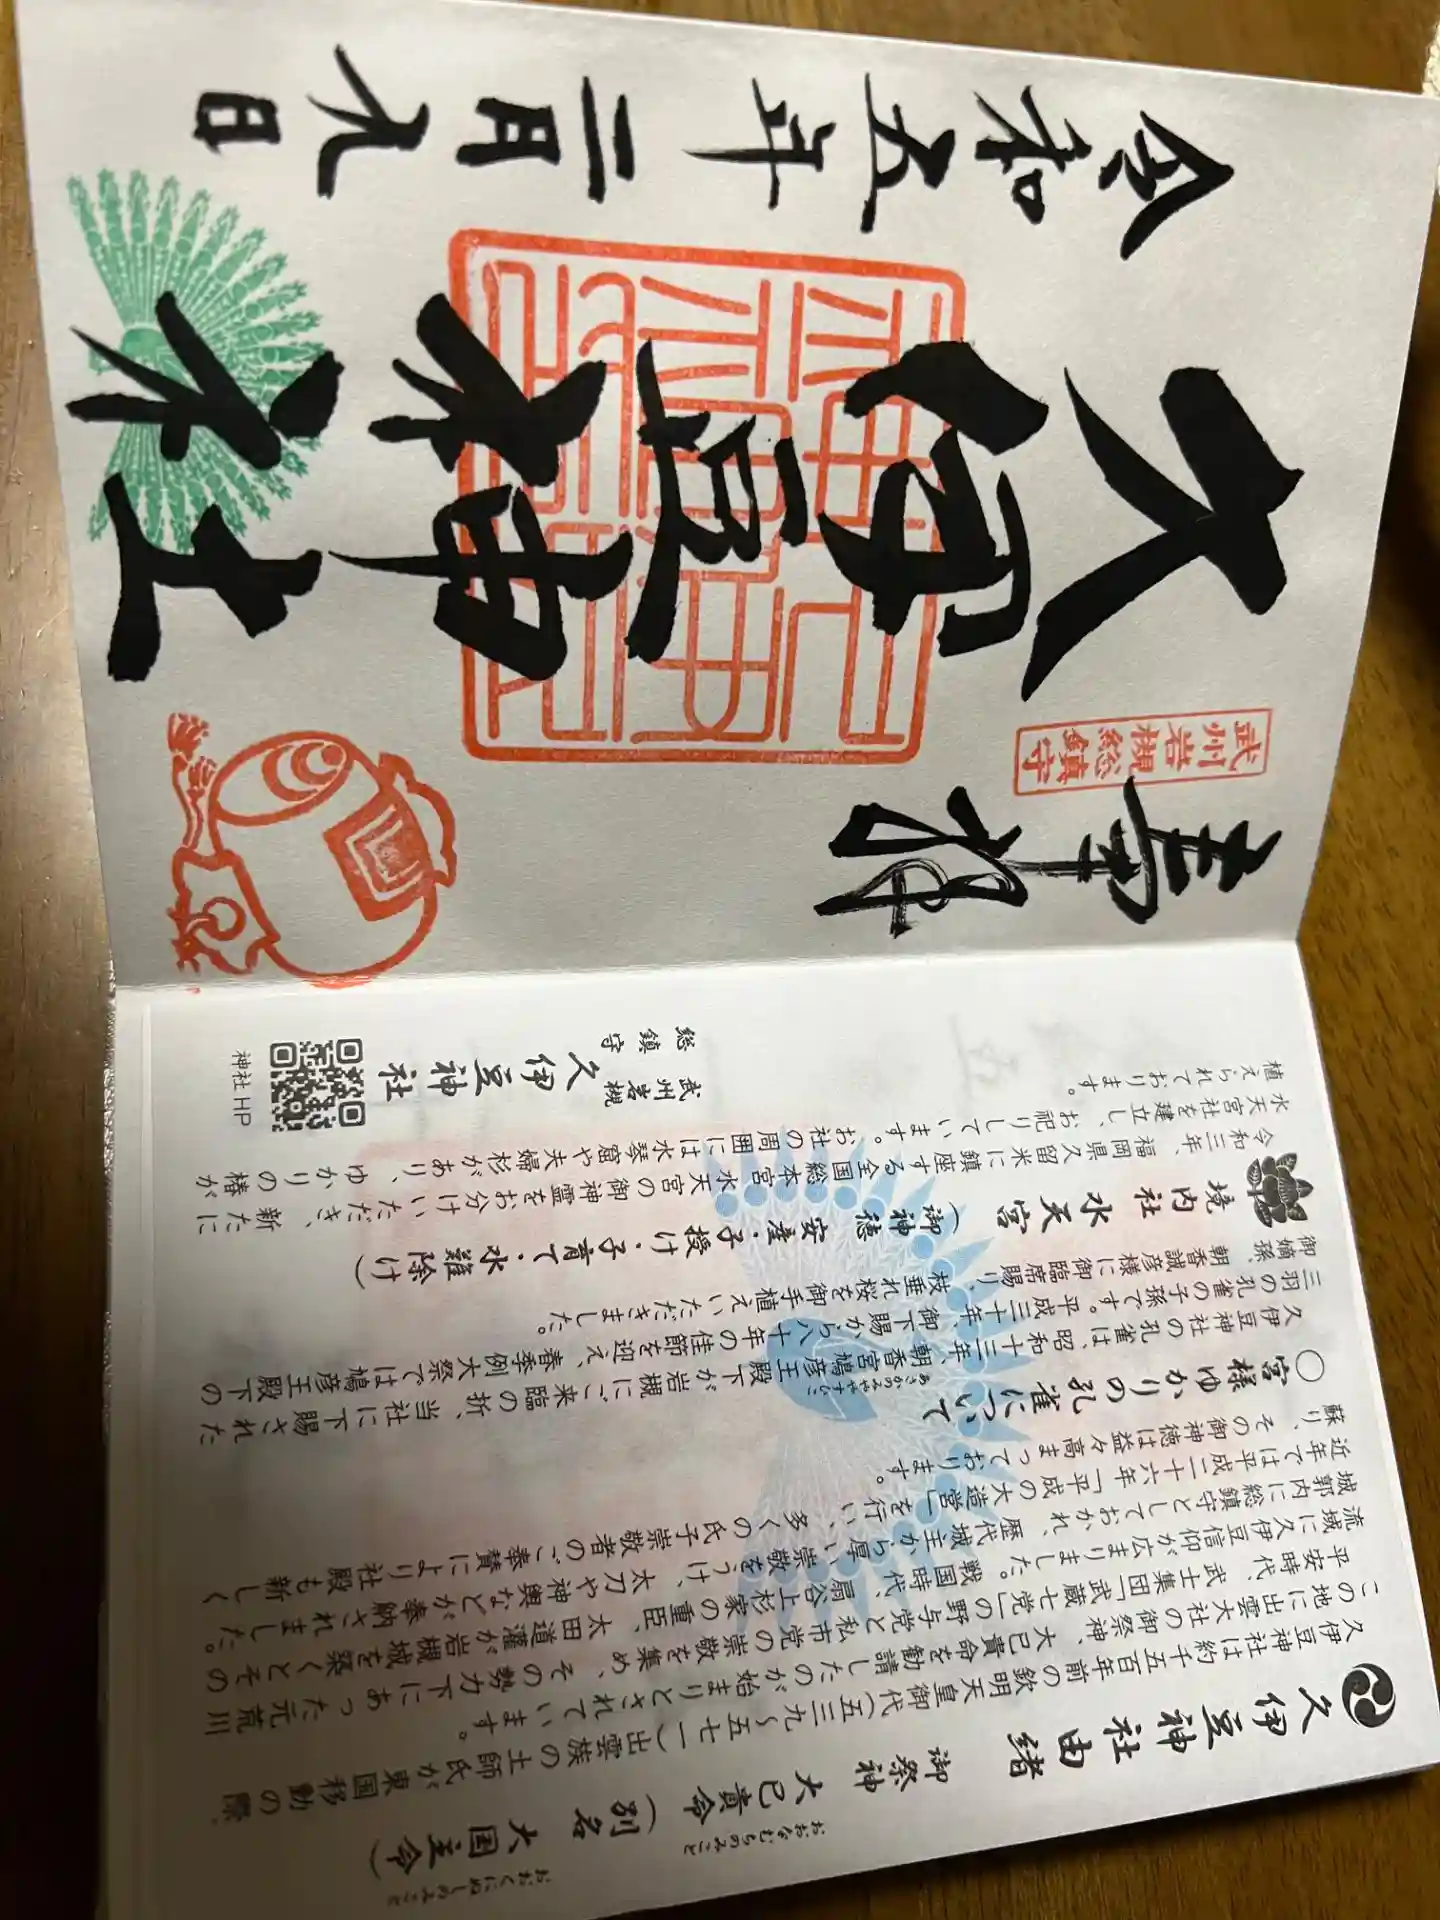 久伊豆神社由緒　御祭神　大己貴命（別名　大国主命）
おおなむちのみこと
おおくにぬしのみこと
久伊豆神社は約千五百年前の欽明天皇御代（五三九～五七一）出雲族の土師氏が東国移動の際、
この地に出雲大社の御祭神、大己貴命を勧請したのが始まりとされています。
平安時代、武士集団「武蔵七党」の野与党と私市党の崇敬を集め、その勢力下にあった元荒川
流域に久伊豆信仰が広まりました。戦国時代、扇谷上杉家の重臣、太田道灌が岩槻城を築くとその
城郭内に総鎮守としておかれ、歴代城主から厚い崇敬をうけ、太刀や神輿などが奉納されました。
近年では平成二十六年「平成の大造営」を行い、多くの氏子崇敬者のご奉賛により社殿も新しく
蘇り、その御神徳は益々高まっております。
○宮様ゆかりの孔雀について
あさかのみややすひこ
久伊豆神社の孔雀は、昭和十三年、朝香宮鳩彦王殿下が岩槻にご来臨の折、当社に下賜された
三羽の孔雀の子孫です。平成三十年、御下賜から八十年の佳節を迎え、春季例大祭では鳩彦王殿下の
御嫡孫、朝香誠彦様に御臨席賜り、枝垂れ桜を御手植えいただきました。
境内社　水天宮　（御神徳　安産・子授け・子育て・水難除け）
令和三年、福岡県久留米に鎮座する全国総本宮水天宮の御神霊をお分けいただき、新たに
水天宮社を建立し、お祀りしています。お社の周囲には水琴窟や夫婦杉があり、ゆかりの椿が
植えられております。
武州岩槻
総鎮守
久伊豆神社
神社HP
奉拝
武州岩槻
総鎮守
久伊豆神社
令和五年二月九日